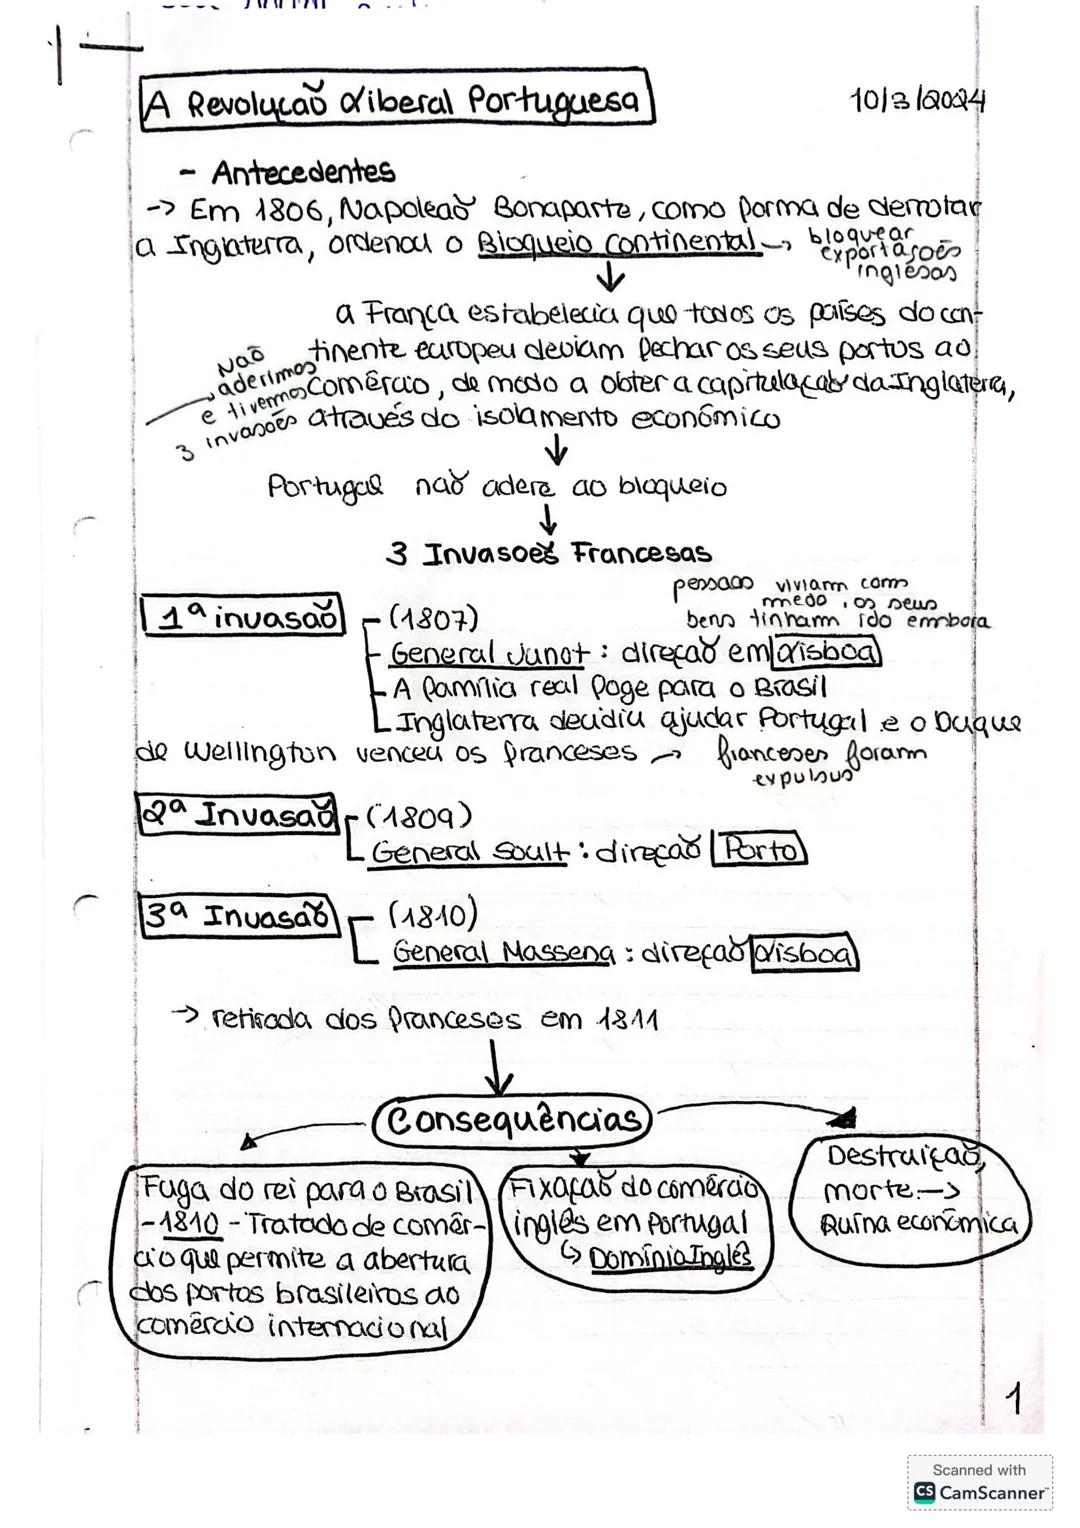 A Revolução Liberal Portuguesa
10/3/2024
- Antecedentes
-> Em 1806, Napoleão Bonaparte, como forma de derrotar
a Inglaterra, ordenou o Bloqueio Continental -> bloquear
exportações
inglesas
↓
a França estabelecia que todos os países do con-
tinente europeu deviam fechar os seus portos ao
comércio, de modo a obter a capitulação da Inglaterra,
através do isolamento económico
Não
aderimos
e tivemos
3 invasões
↓
Portugal não adere ao bloqueio
↓
3 Invasões Francesas
pessoas viviam com
medo, os seus
bens tinham ido embora
1ª invasão
(1807)
General Junot : direção em Lisboa
- A família real foge para o Brasil
Inglaterra decidiu ajudar Portugal e o Duque
de Wellington venceu os franceses -> franceses foram
expulsos
2ª Invasão
(1809)
General Soult : direção Porto
3ª Invasão
(1810)
General Massena : direção Lisboa
-> retirada dos franceses em 1811
↓
Consequências
Fuga do rei para o Brasil
- 1810 - Tratado de comér-
cio que permite a abertura
dos portos brasileiros ao
comércio internacional
Fixação do comércio
inglês em Portugal
↳ Domínio Inglês
Destruição,
morte ->
Ruína económica
1
Scanned with
CS CamScanner